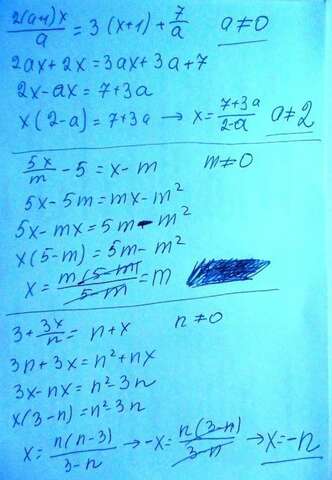 2(a+1)x/a = 3(x+1) + 7/a a≠0
2ax+2x=3ax+3a+7
2x-ax=7+3a
x(2-a)=7+3a → x=7+3a/2-a a≠2
5x/m - 5 = x-m m≠0
5x-5m=mx-m²
5x-mx=5m-m²
x(5-m)=5m-m²
x=m(5-m)/5-m=m
3+3x/n=n+x n≠0
3n+3x=n²+nx
3x-nx=n²-3n
x(3-n)=n²-3n
x=n(n-3)/3-n → -x=n(3-n)/3-n → x=-n